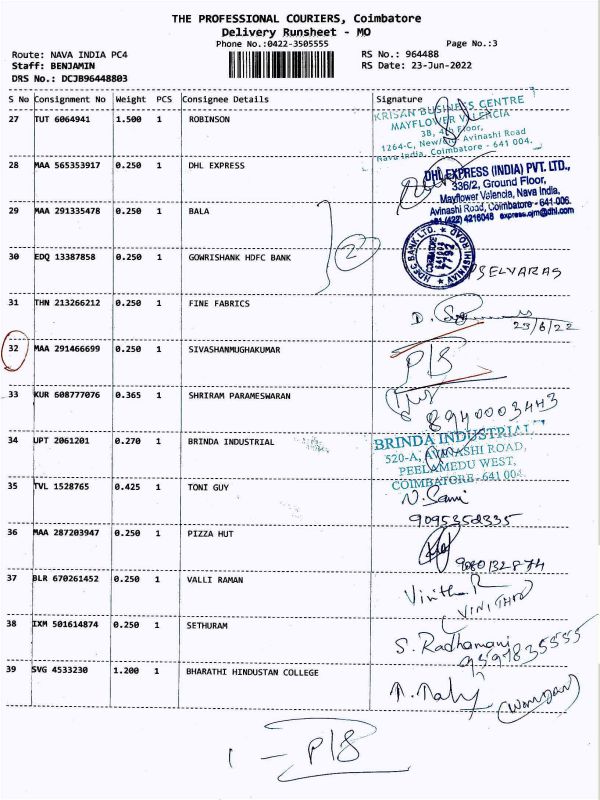 THE PROFESSIONAL COURIERS, Coimbatore
Delivery Runsheet - MO
Phone No.:0422-3505555
Page No.:3
Route: NAVA INDIA PC4
RS No.: 964488
Staff: BENJAMIN
RS Date: 23-Jun-2022
DRS No.: DCJB96448803
S No Consignment No Weight PCS Consignee Details Signature
27 TUT 6064941 1.500 1 ROBINSON
KRISAN BUSINESS CENTRE
MAYFLOWER VALENCIA
3B, 4th Floor,
1264-C, New/Old Avinashi Road
Nava India, Coimbatore - 641 004.
28 MAA 565353917 0.250 1 DHL EXPRESS
DHL EXPRESS (INDIA) PVT. LTD.,
336/2, Ground Floor,
Mayflower Valencia, Nava India,
Avinashi Road, Coimbatore - 641-006.
29 MAA 291335478 0.250 1 BALA
2
30 EDQ 13387858 0.250 1 GOWRISHANK HDFC BANK
HDFC BANK LTD. AVINASHI ROAD
COIMBATORE
SELVARAS
31 THN 213266212 0.250 1 FINE FABRICS
D.
23/6/22
32 MAA 291466699 0.250 1 SIVASHANMUGHAKUMAR
P/S
33 KUR 608777076 0.365 1 SHRIRAM PARAMESWARAN
8940003443
34 UPT 2061201 0.270 1 BRINDA INDUSTRIAL
BRINDA INDUSTRIAL
520-A, AVINASHI ROAD,
PEELAMEDU WEST,
COIMBATORE - 641 004.
35 TVL 1528765 0.425 1 TONI GUY
N. Sami
9095352335
36 MAA 287203947 0.250 1 PIZZA HUT
37 BLR 670261452 0.250 1 VALLI RAMAN
Vinitha R
38 IXM 501614874 0.250 1 SETHURAM
S. Radhamani
9597835555
39 SVG 4533230 1.200 1 BHARATHI HINDUSTAN COLLEGE
1 - P/S